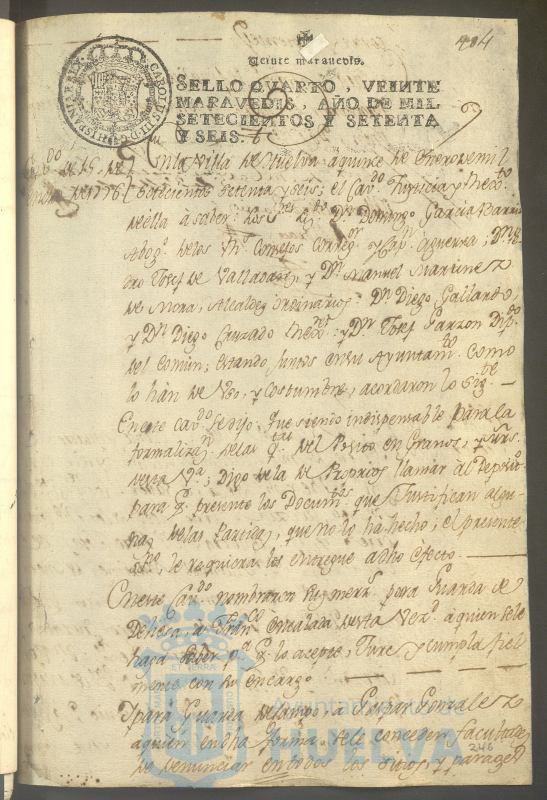 404
Veinte maravedis.
SELLO QVARTO, VEINTE
MARAVEDIS, AÑO DE MIL
SETECIENTOS Y SETENTA
Y SEIS.
CAROLUS III D G HISPANIAR REX
Cav.do de 15 de En la Villa de Huelva a quince de Enero de mil
de 1776 Setecientos setenta y seis: el Cav.do Justicia y Rex.to
de ella a saver: los S.res D.n Domingo Garcia
Abog.do de los R.s Consejos Correg.or y Cap.n aguerra; D.n
Josef de Valladares, y D.n Manuel Martinez
de Mora, Alcaldes ordinarios: D.n Diego Gallardo,
y D.n Diego Cruzado Rex.res: y D.n Josef Garzon Dip.do
del Comun; estando juntos en su Ayuntam.to como
lo han de uso, y costumbre, acordaron lo sig.te
En este cav.do se dijo: que siendo indispensable para la
formaliz.n de las q.tas del Posito en Granos, y mrs.
de esta V.a; Digo de la de Propios llamar al Deposit.o
para q.e presente los Docum.tos que Justifican algu-
nas de las Partidas, que no lo ha hecho; el presente
S.no, le requiera los entregue a dho efecto.
En este Cav.do nombraron sus mers.s para Guarda de
Dehesa, a Fran.co de esta Vez.d a quien se le
haga saver p.a q.e lo acepte, Jure y cumpla fiel
mente con su encargo
Y para Guarda del campo, a Gaspar Gonzalez
a quien en dha forma se le conceden facultades
de denunciar en todos los sitios y parages
246
Ayuntamiento de
HUELVA